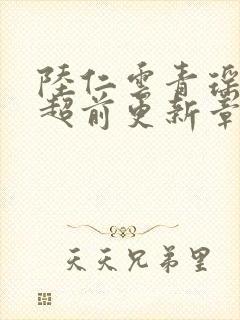 陸仁雲青瑶
超前更新章
天天兄弟里